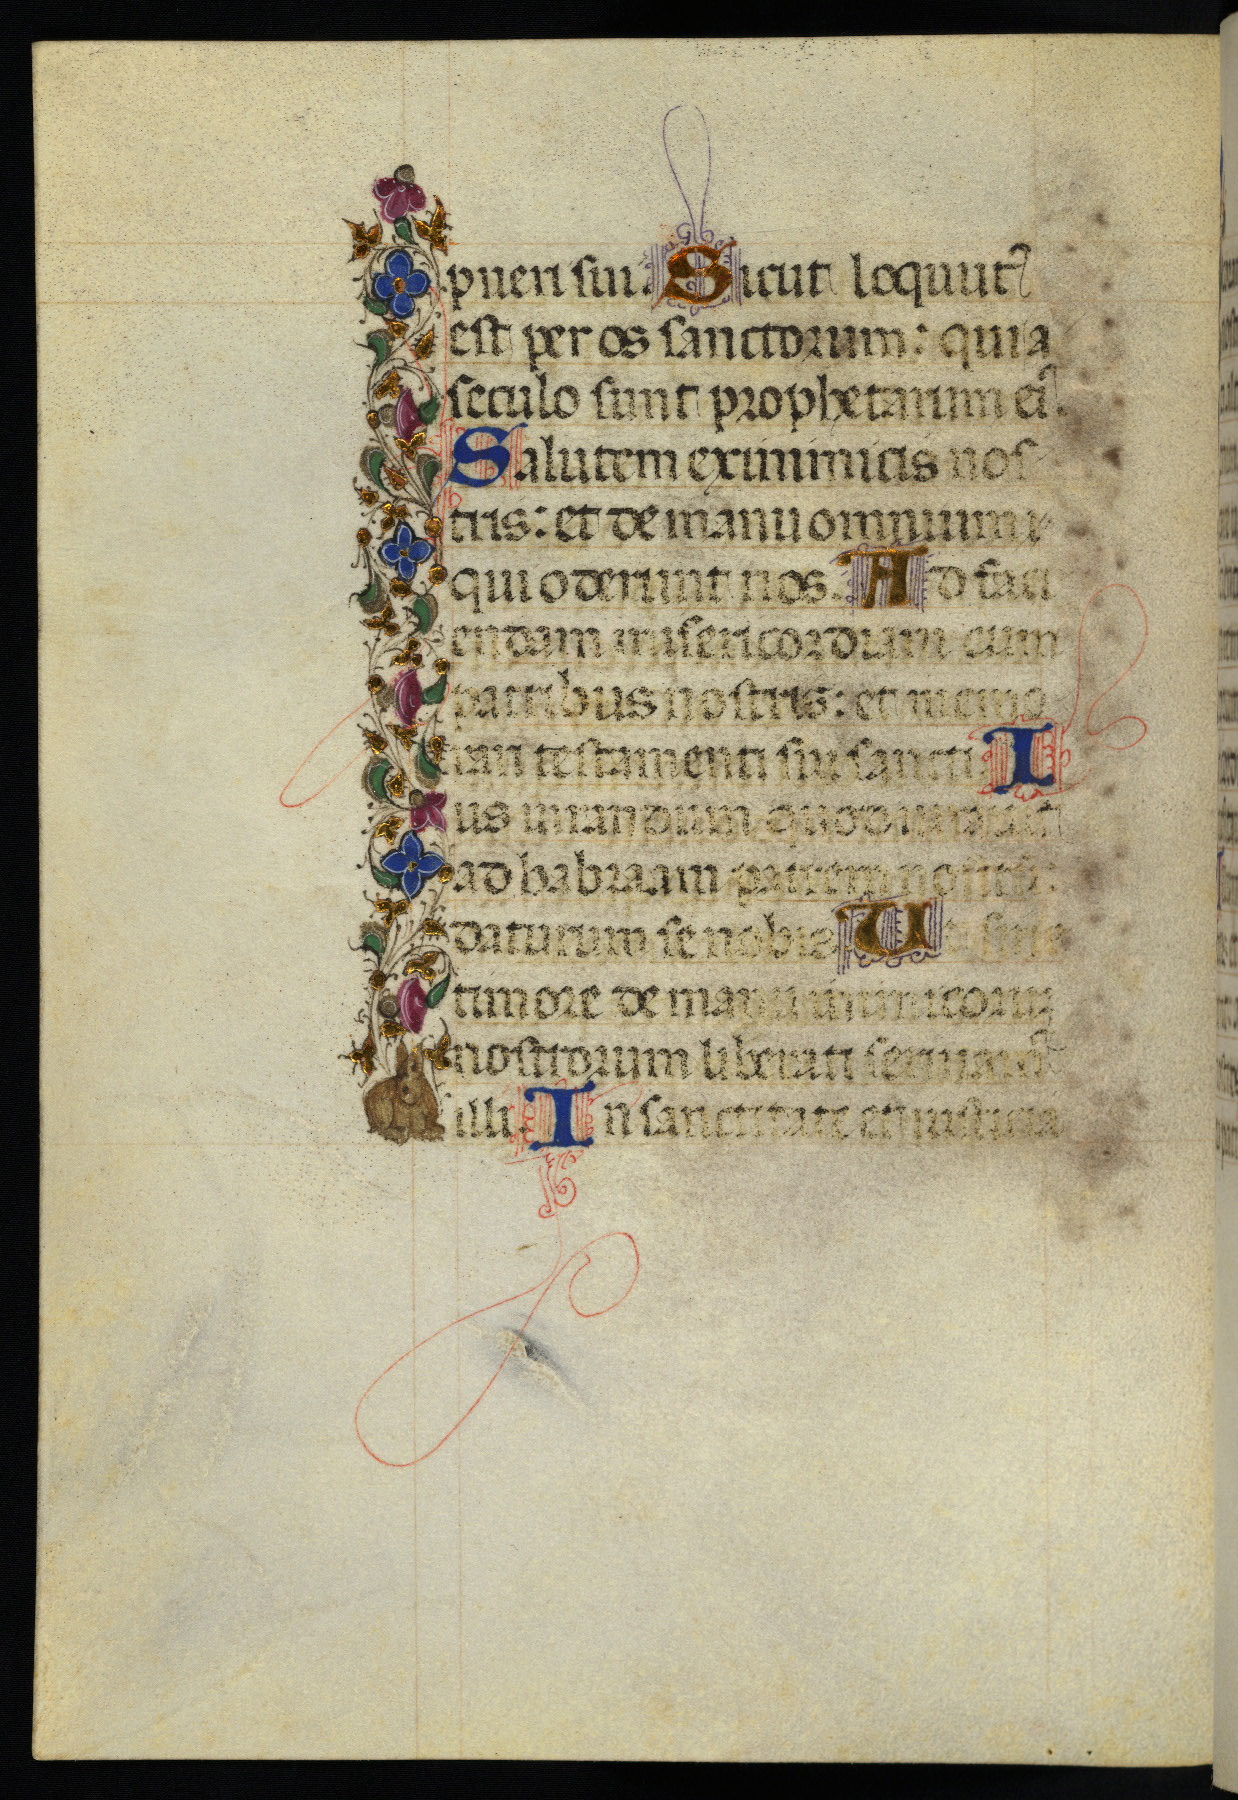 pueri sui. Sicut loquutꝰ
est per os sanctorum: qui a
seculo sunt prophetarum eiꝰ.
Salutem ex inimicis nos
tris: et de manu omnium
qui oderunt nos. Ad faci
endam misericordiam cum
patribus nostris: et memo
rari testamenti sui sancti. I
us iurandum quod iurauit
ad habraam patrem nostrū:
daturum se nobis Ut sine
timore de manu inimicorum
nostrorum liberati seruiamꝰ
illi. In sanctitate et iusticia